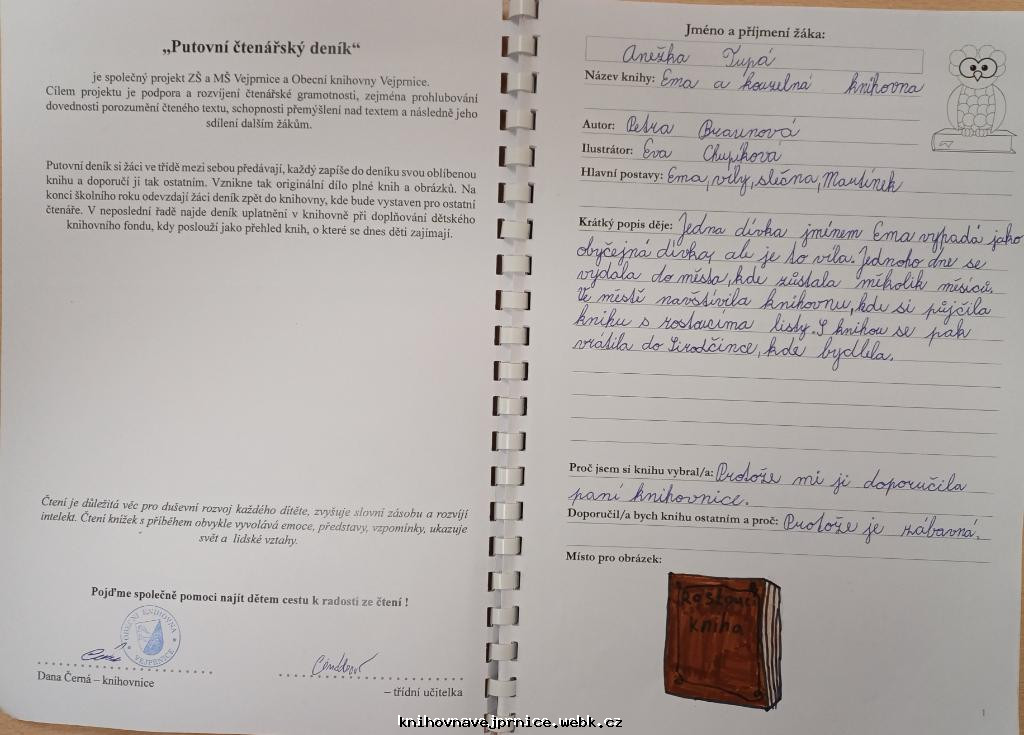 „Putovní čtenářský deník“
je společný projekt ZŠ a MŠ Vejprnice a Obecní knihovny Vejprnice.
Cílem projektu je podpora a rozvíjení čtenářské gramotnosti, zejména prohlubování
dovednosti porozumění čteného textu, schopnosti přemýšlení nad textem a následně jeho
sdílení dalším žákům.
Putovní deník si žáci ve třídě mezi sebou předávají, každý zapíše do deníku svou oblíbenou
knihu a doporučí ji tak ostatním. Vznikne tak originální dílo plné knih a obrázků. Na
konci školního roku odevzdají žáci deník zpět do knihovny, kde bude vystaven pro ostatní
čtenáře. V neposlední řadě najde deník uplatnění v knihovně při doplňování dětského
knihovního fondu, kdy poslouží jako přehled knih, o které se dnes děti zajímají.
Čtení je důležitá věc pro duševní rozvoj každého dítěte, zvyšuje slovní zásobu a rozvíjí
intelekt. Čtení knížek s příběhem obvykle vyvolává emoce, představy, vzpomínky, ukazuje
svět a lidské vztahy.
Pojďme společně pomoci najít dětem cestu k radosti ze čtení !
OBECNÍ KNIHOVNA
VEJPRNICE
Dana Černá – knihovnice
– třídní učitelka
Jméno a příjmení žáka:
Anežka Tupá
Název knihy: Ema a kouzelná knihovna
Autor: Petra Braunová
Ilustrátor: Eva Chupíková
Hlavní postavy: Ema, víly, slečna, Martínek
Krátký popis děje: Jedna dívka jménem Ema vypadá jako
obyčejná dívka, ale je to víla. Jednoho dne se
vydala do města, kde zůstala několik měsíců.
Ve městě navštívila knihovnu, kde si půjčila
knihu s rostoucíma listy. S knihou se pak
vrátila do Sirodčince, kde bydlela.
Proč jsem si knihu vybral/a: Protože mi ji doporučila
paní knihovnice.
Doporučil/a bych knihu ostatním a proč: Protože je zábavná.
Místo pro obrázek:
Rostoucí
kniha
1
knihovnavejprnice.webk.cz